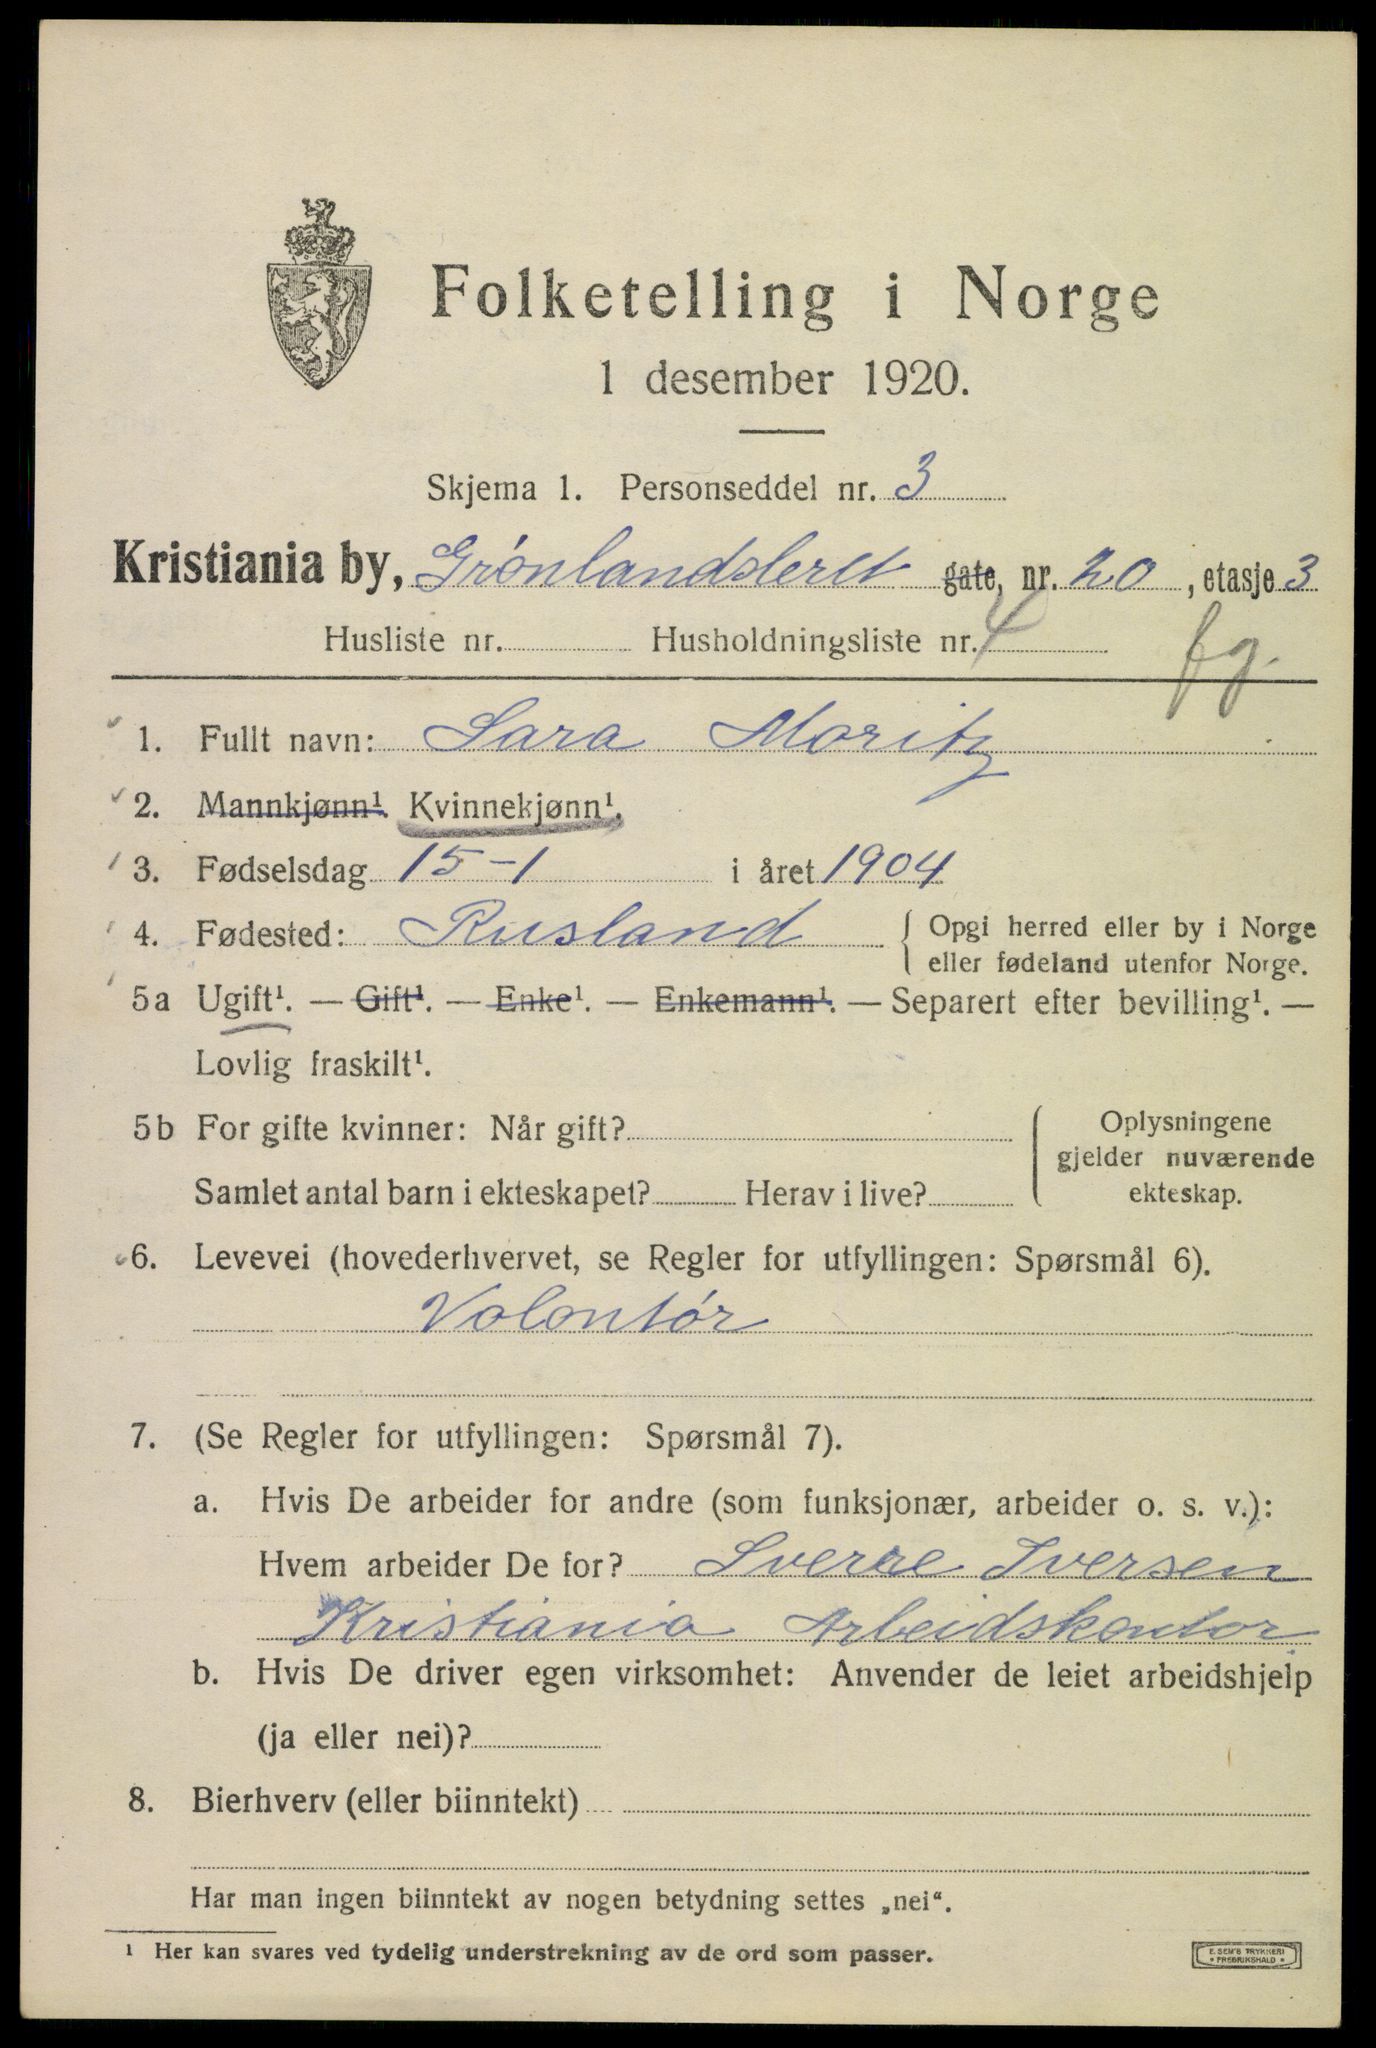 Folketelling i Norge
1 desember 1920.
Skjema 1. Personseddel nr. 3
Kristiania by, Grønlandsleret gate, nr. 20, etasje 3
Husliste nr. Husholdningsliste nr. 4 fg.
1. Fullt navn: Sara Moritz
2. Mannkjønn¹. Kvinnekjønn¹.
3. Fødselsdag 15-1 i året 1904
4. Fødested: Rusland { Opgi herred eller by i Norge
eller fødeland utenfor Norge.
5a Ugift¹. — Gift¹. — Enke¹. — Enkemann¹. — Separert efter bevilling¹. —
Lovlig fraskilt¹.
5b For gifte kvinner: Når gift?
Samlet antal barn i ekteskapet? Herav i live?
Oplysningene
gjelder nuværende
ekteskap.
6. Levevei (hovederhvervet, se Regler for utfyllingen: Spørsmål 6).
Volontør
7. (Se Regler for utfyllingen: Spørsmål 7).
a. Hvis De arbeider for andre (som funksjonær, arbeider o. s. v.):
Hvem arbeider De for? Sverre Iversen
Kristiania Arbeidskontor
b. Hvis De driver egen virksomhet: Anvender de leiet arbeidshjelp
(ja eller nei)?
8. Bierhverv (eller biinntekt)
Har man ingen biinntekt av nogen betydning settes „nei“.
¹ Her kan svares ved tydelig understrekning av de ord som passer.
E. SEM'S TRYKKERI
• FREDRIKSHALD •